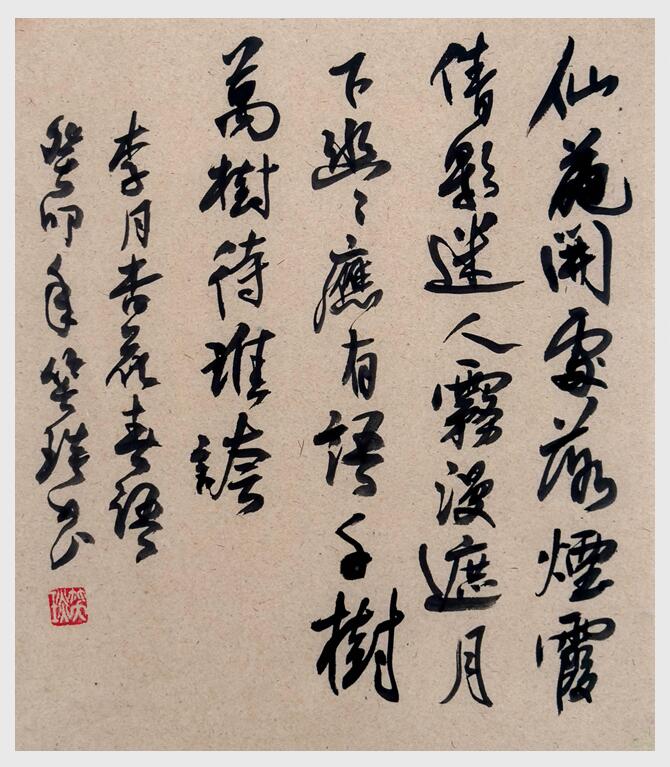 仙葩開處落煙霞
倩影迷人霧漫遮月
下幽〻應有語千樹
萬樹待誰誇
李月杏花春語
癸卯年笑書